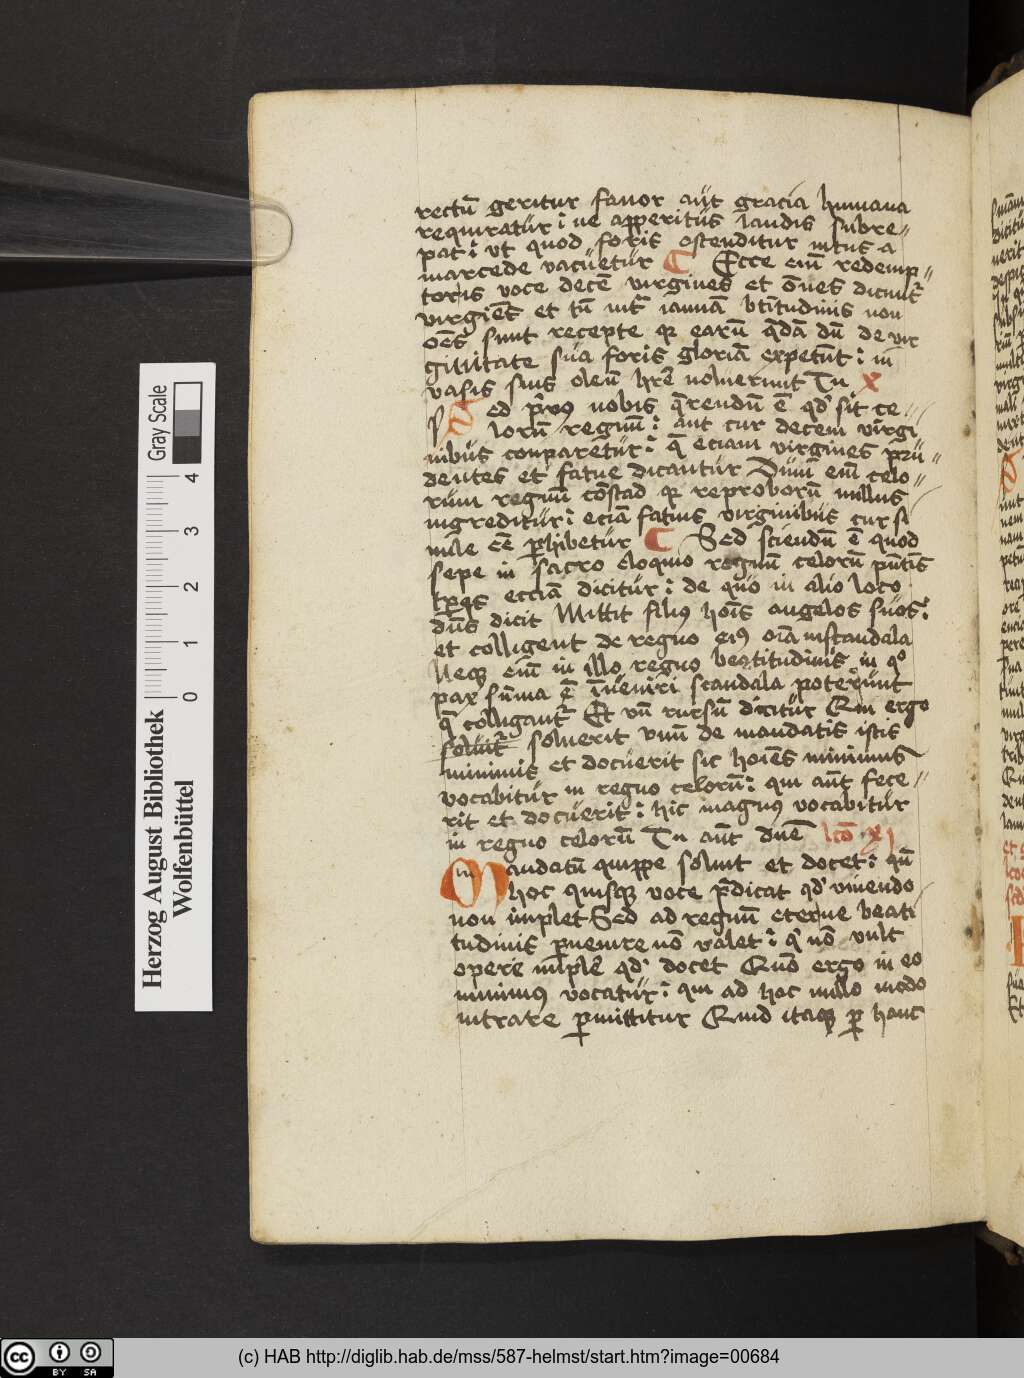 rectū geritur favor aut gracia humana
requiratur : ne apperitus laudis subre-
pat : ut quod foris ostenditur intus a
marcede vacuetur Ecce eim̄ redemp-
toris voce decē virgines et ōnes dicunt̄
virgiēs et tn̄ intr̄ ianuā bt̄itudinis non
oēs sunt recepte qr earū q̄dā dū de vir
ginitate sua foris gloriā expetūt : in
vasis suis oleū hr̄e noluerunt Tu x
Sed pr̄us nobis q̄rendū ē qd' sit ce-
lorū regnū : aut cur decem virgi
nibus conparetur : q̄ eciam virgines pru-
dentes et fatue dicantur Dum eim̄ celo-
rum regnū cōstad qr reproborū nullus
ingreditur : eciā fatuis virginibus cur si
mile eē perhibetur Sed sciendū ē quod
sepe in sacro eloquio regnū celorū pn̄tis
tp̄ris eccīa dicitur : de quo in alio loco
dn̄s dicit Mittit filius hoīs angelos suos :
et colligent de regno eius oīa inscandala
Neqz eim̄ in illo regno beatitudinis in qo
pax sūma ē īveniri scandala poterunt
q̄ colligant̄ Et vn̄ rursū dicitur Qui ergo
solūit̄ solverit unū de mandatis istis
minimis et docuerit sic hoīes minimus
vocabitur in regno celorū : qui aūt fece-
rit et docuerit : hic magnus vocabitur
in regno celorū Tu aūt dn̄e lcō xi
Mandatū quippe solvit et docet : qn̄
hoc quisqz voce p̄dicat qd' vivendo
non implet Sed ad regnū eterne beati
tudinis pervenire nō valet : q' nō vult
opere implē qd' docet Quō ergo in eo
minimus vocatur : qui ad hoc nullo modo
intrare permittitur Quid itaqz per hanc
Herzog August Bibliothek
Wolfenbüttel
Gray Scale
0 1 2 3 4
cc BY SA
(c) HAB http://diglib.hab.de/mss/587-helmst/start.htm?image=00684